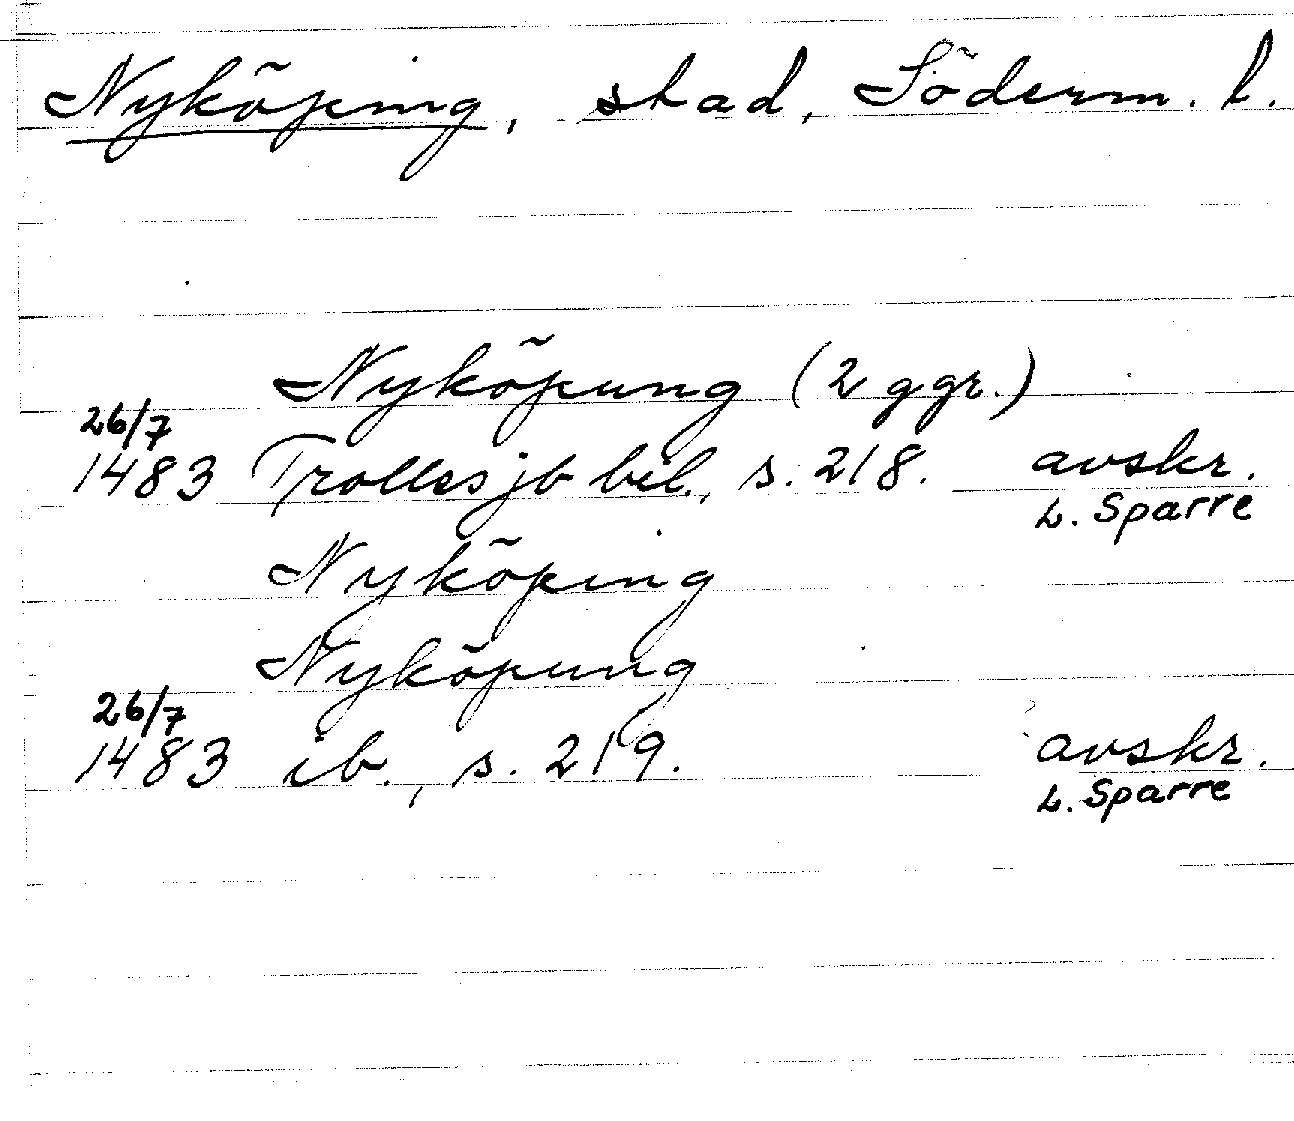 Nyköping, stad, Söderm. l.
Nyköpung (2 ggr.)
26/7
1483 Trolles jb bil., s. 218. avskr.
L. Sparre
Nyköping
Nyköpung
26/7
1483 ib., s. 219. avskr.
L. Sparre